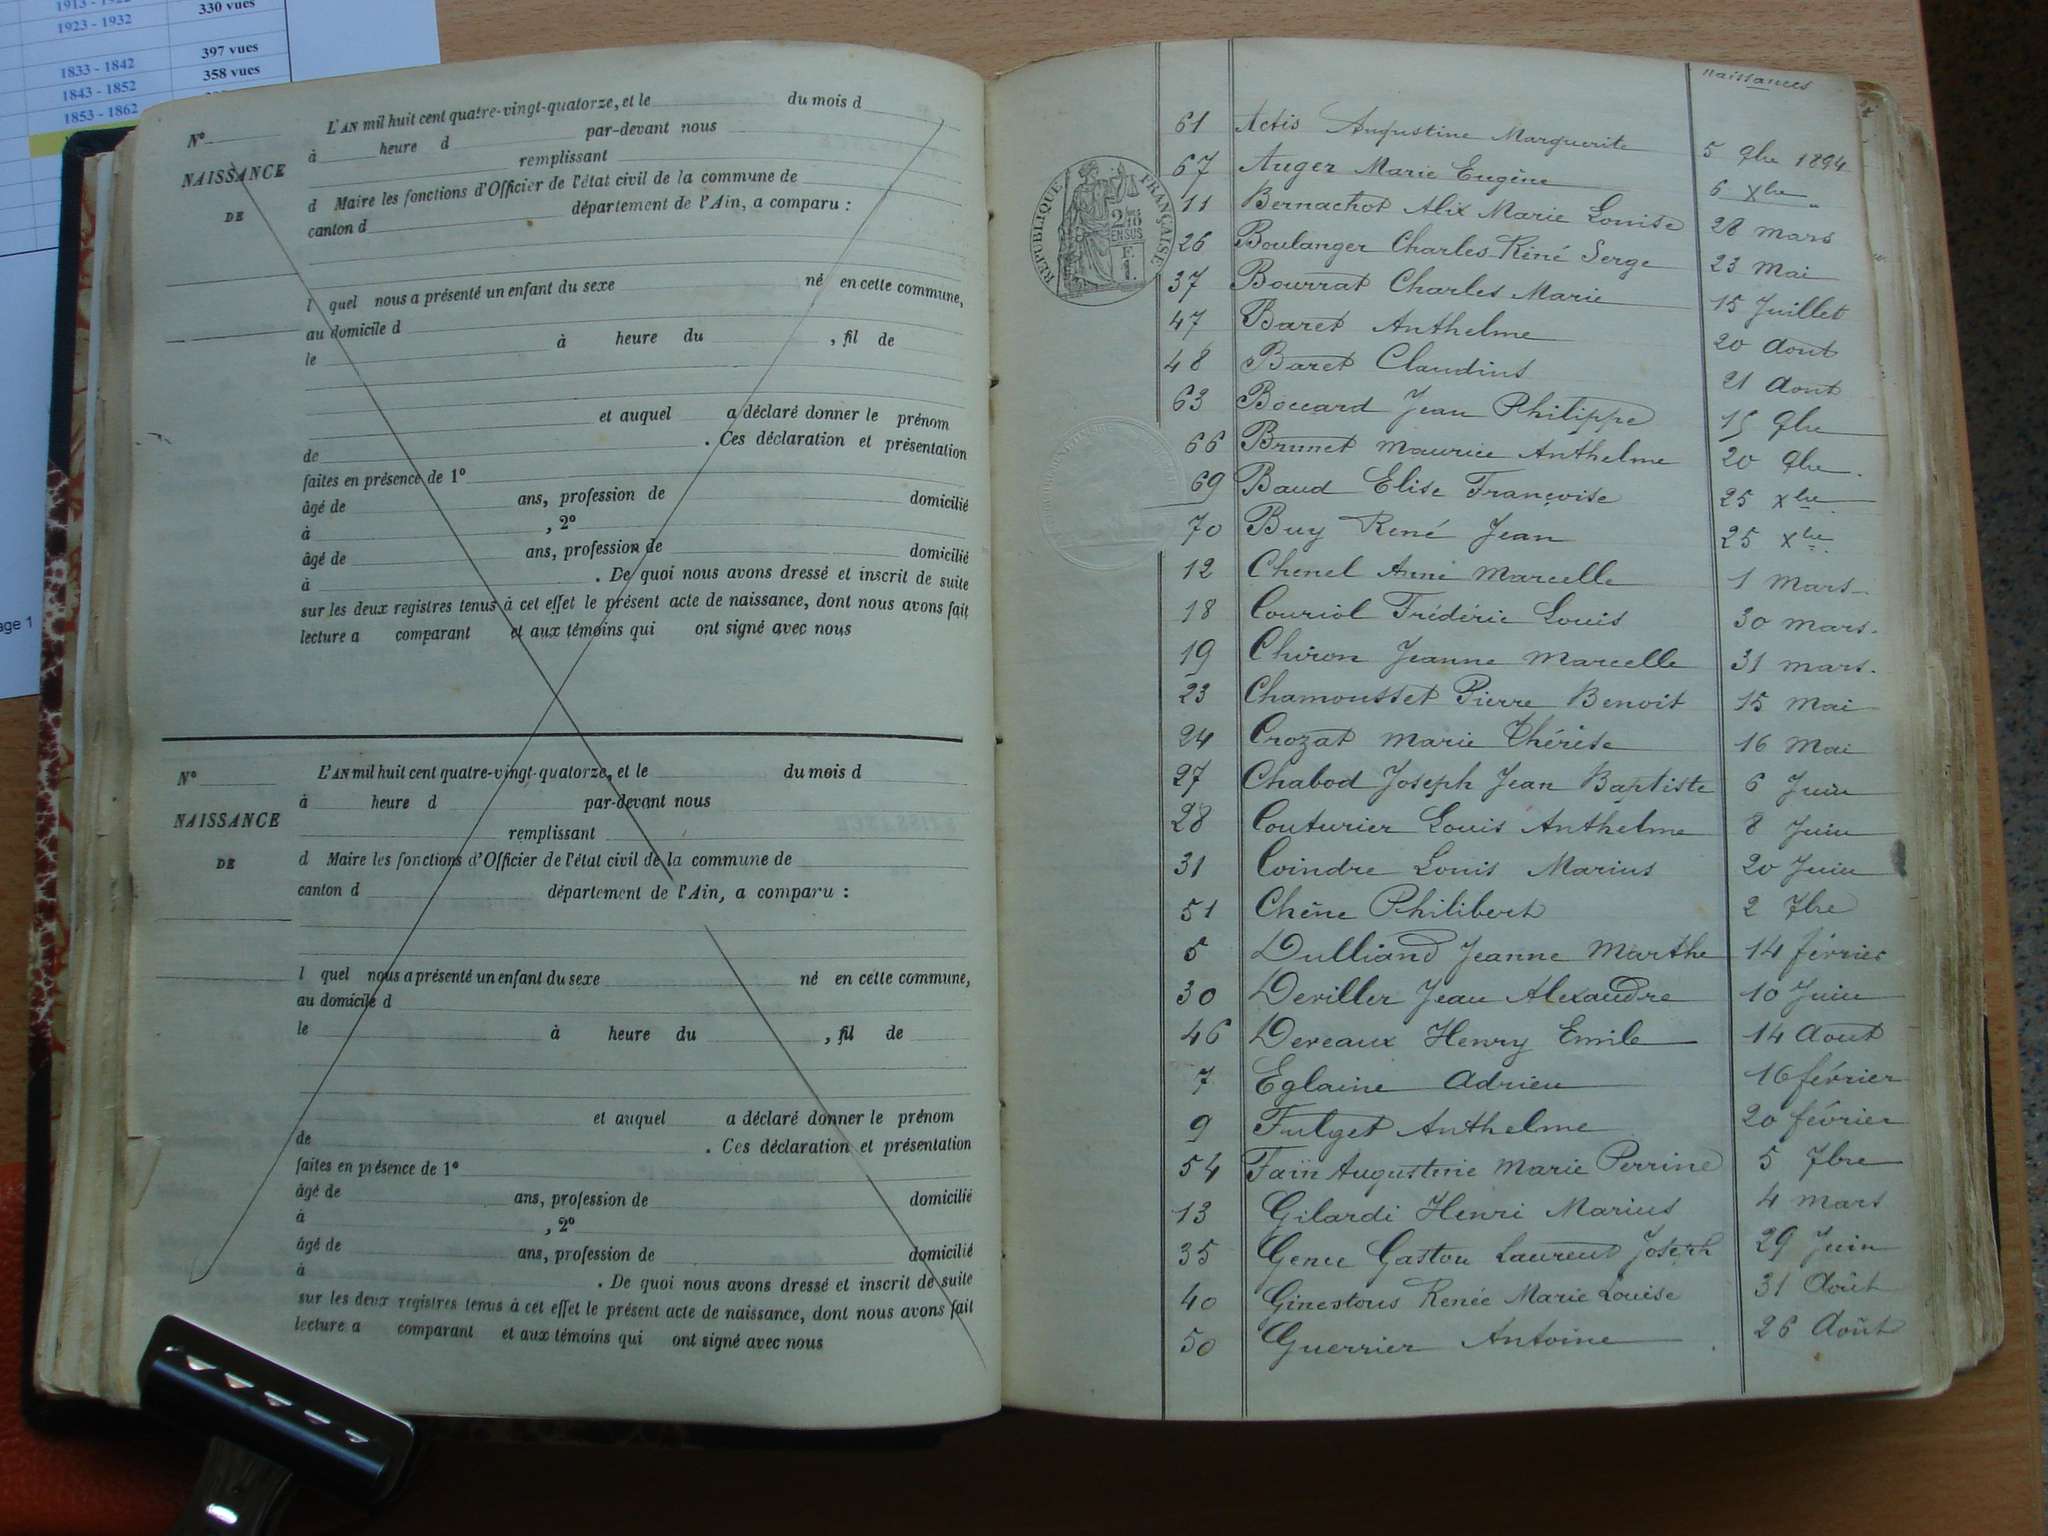 1913 - 1922
1923 - 1932
330 vues
1833 - 1842
397 vues
1843 - 1852
358 vues
1853 - 1862
age 1
N°
NAISSANCE
DE
L'AN mil huit cent quatre-vingt-quatorze, et le du mois d
à heure d par-devant nous
remplissant
d Maire les fonctions d'Officier de l'état civil de la commune de
canton d département de l'Ain, a comparu :
l quel nous a présenté un enfant du sexe né en cette commune,
au domicile d
le à heure du , fil de
et auquel a déclaré donner le prénom
de . Ces déclaration et présentation
faites en présence de 1°
âgé de ans, profession de domicilié
à , 2°
âgé de ans, profession de domicilié
à . De quoi nous avons dressé et inscrit de suite
sur les deux registres tenus à cet effet le présent acte de naissance, dont nous avons fait
lecture a comparant et aux témoins qui ont signé avec nous
N°
NAISSANCE
DE
L'AN mil huit cent quatre-vingt-quatorze, et le du mois d
à heure d par-devant nous
remplissant
d Maire les fonctions d'Officier de l'état civil de la commune de
canton d département de l'Ain, a comparu :
l quel nous a présenté un enfant du sexe né en cette commune,
au domicile d
le à heure du , fil de
et auquel a déclaré donner le prénom
de . Ces déclaration et présentation
faites en présence de 1°
âgé de ans, profession de domicilié
à , 2°
âgé de ans, profession de domicilié
à . De quoi nous avons dressé et inscrit de suite
sur les deux registres tenus à cet effet le présent acte de naissance, dont nous avons fait
lecture a comparant et aux témoins qui ont signé avec nous
RÉPUBLIQUE FRANÇAISE
2/10
EN SUS
F.
1.
naissances
61 Actis Augustine Marguerite 5 9bre 1894
67 Auger Marie Eugène 6 Xbre "
11 Bernachot Alix Marie Louise 28 mars
26 Boulanger Charles Réné Serge 23 Mai
37 Bourrat Charles Marie 15 Juillet
47 Baret Anthelme 20 Aout
48 Baret Claudius 21 Aout
63 Boccard Jean Philippe 15 9bre
66 Brunet Maurice Anthelme 20 9bre.
69 Baud Elise Françoise 25 Xbre
70 Buy René Jean 25 Xbre.
12 Chenel Anne Marcelle 1 Mars
18 Couriol Frédéric Louis 30 mars.
19 Chiron Jeanne Marcelle 31 mars.
23 Chamousset Pierre Benoit 15 Mai
24 Crozat Marie Thérèse 16 Mai
27 Chabod Joseph Jean Baptiste 6 Juin
28 Couturier Louis Anthelme 8 Juin
31 Coindre Louis Marius 20 Juin
51 Chêne Philibert 2 7bre
5 Dulliand Jeanne Marthe 14 février
30 Deviller Jean Alexandre 10 Juin
46 Dereaux Henry Emile 14 Aout
7 Eglaine Adrien 16 février
9 Fulget Anthelme 20 février
54 Faïn Augustine Marie Perrine 5 7bre
13 Gilardi Henri Marius 4 mars
35 Genee Gaston Laurent Joseph 29 Juin
40 Ginestous Renée Marie Louise 31 Août
50 Guerrier Antoine 26 Août